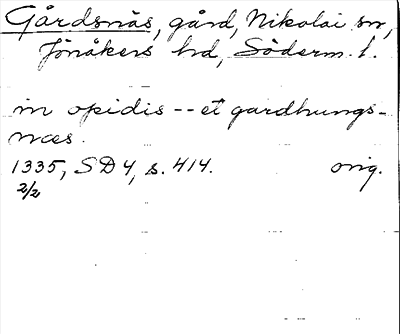 Gårdsnäs, gård, Nikolai sn,
Jönåkers hd, Söderm. l.
in opidis -- et gardhungs-
næs.
1335, SD 4, s. 414. orig.
2/2